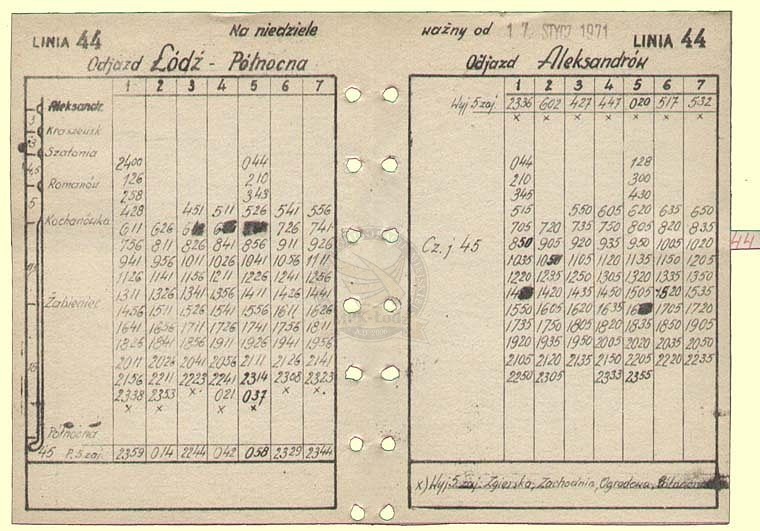 LINIA 44 Na niedziele ważny od 17. STYCZ 1971 LINIA 44
Odjazd Łódź - Północna
Odjazd Aleksandrów
1 2 3 4 5 6 7
Aleksandr.
Kraszewsk
Szatonia
2400 044
126 210
Romanów 258 343
428 451 511 526 541 556
Kochanówka 611 626 726 741
756 811 826 841 856 911 926
941 956 1011 1026 1041 1056 1111
1126 1141 1156 1211 1226 1241 1256
Żabieniec 1311 1326 1341 1356 1411 1426 1441
1456 1511 1526 1541 1556 1611 1626
1641 1656 1711 1726 1741 1756 1811
1826 1841 1856 1911 1926 1941 1956
2011 2026 2041 2056 2111 2126 2141
2156 2211 2223 2241 2314 2308 2323
2338 2353 x 021 037 x x
x x x x
Północna
45 P.S zaj. 2359 014 2244 042 058 2329 2344
1 2 3 4 5 6 7
Wyj. S zaj. 2336 602 427 447 020 517 532
x x x x x x x
044 128
210 300
345 430
515 550 605 620 635 650
705 720 735 750 805 820 835
Cz. j 45 850 905 920 935 950 1005 1020
1035 1050 1105 1120 1135 1150 1205
1220 1235 1250 1305 1320 1335 1350
1420 1435 1450 1505 1520 1535
1550 1605 1620 1635 1705 1720
1735 1750 1805 1820 1835 1850 1905
1920 1935 1950 2005 2020 2035 2050
2105 2120 2135 2150 2205 2220 2235
2250 2305 2333 2355
x) Wyj. S zaj. Zgierska, Zachodnia, Ogrodowa, Północna
44